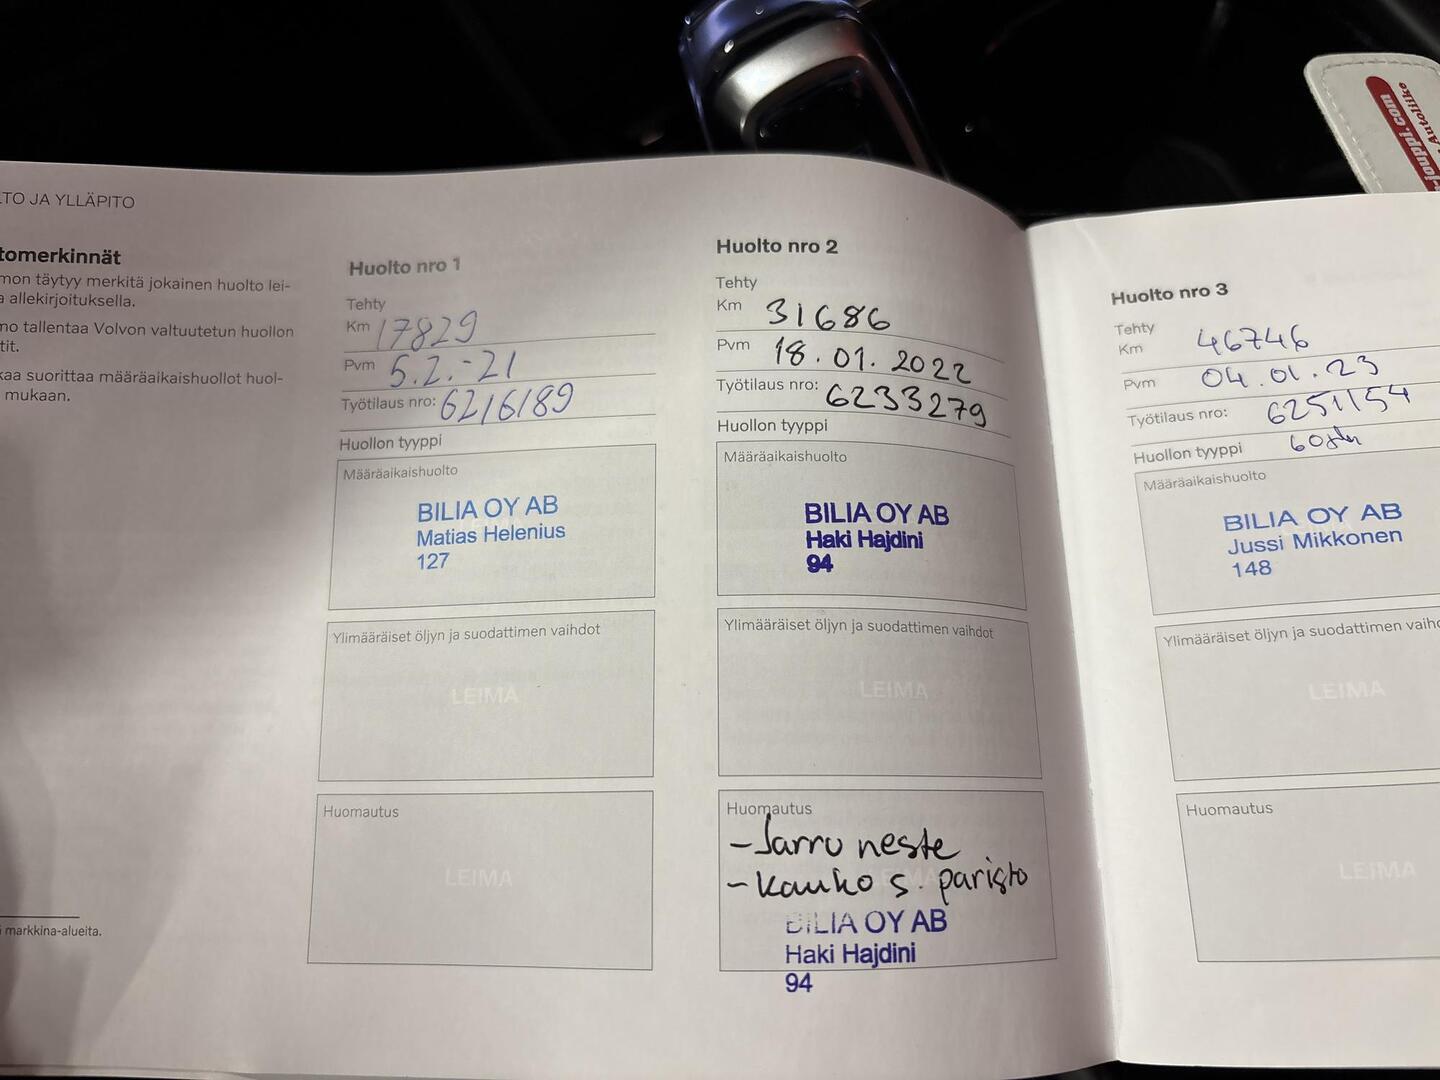 LTO JA YLLÄPITO
tomerkinnät
mon täytyy merkitä jokainen huolto lei-
a allekirjoituksella.
mo tallentaa Volvon valtuutetun huollon
tit.
kaa suorittaa määräaikaishuollot huol-
mukaan.
markkina-alueita.
Huolto nro 1
Tehty
Km 17829
Pvm 5.2.-21
Työtilaus nro: 6216189
Huollon tyyppi
Määräaikaishuolto
BILIA OY AB
Matias Helenius
127
Ylimääräiset öljyn ja suodattimen vaihdot
LEIMA
Huomautus
LEIMA
Huolto nro 2
Tehty
Km 31686
Pvm 18.01.2022
Työtilaus nro: 6233279
Huollon tyyppi
Määräaikaishuolto
BILIA OY AB
Haki Hajdini
94
Ylimääräiset öljyn ja suodattimen vaihdot
LEIMA
Huomautus
-Jarru neste
-Kauko s. paristo
BILIA OY AB
Haki Hajdini
94
Huolto nro 3
Tehty
Km 46746
Pvm 04.01.23
Työtilaus nro: 6251154
Huollon tyyppi
Määräaikaishuolto
BILIA OY AB
Jussi Mikkonen
148
Ylimääräiset öljyn ja suodattimen vaihd
LEIMA
Huomautus
LEIMA
rjouppi.com
Autoliike